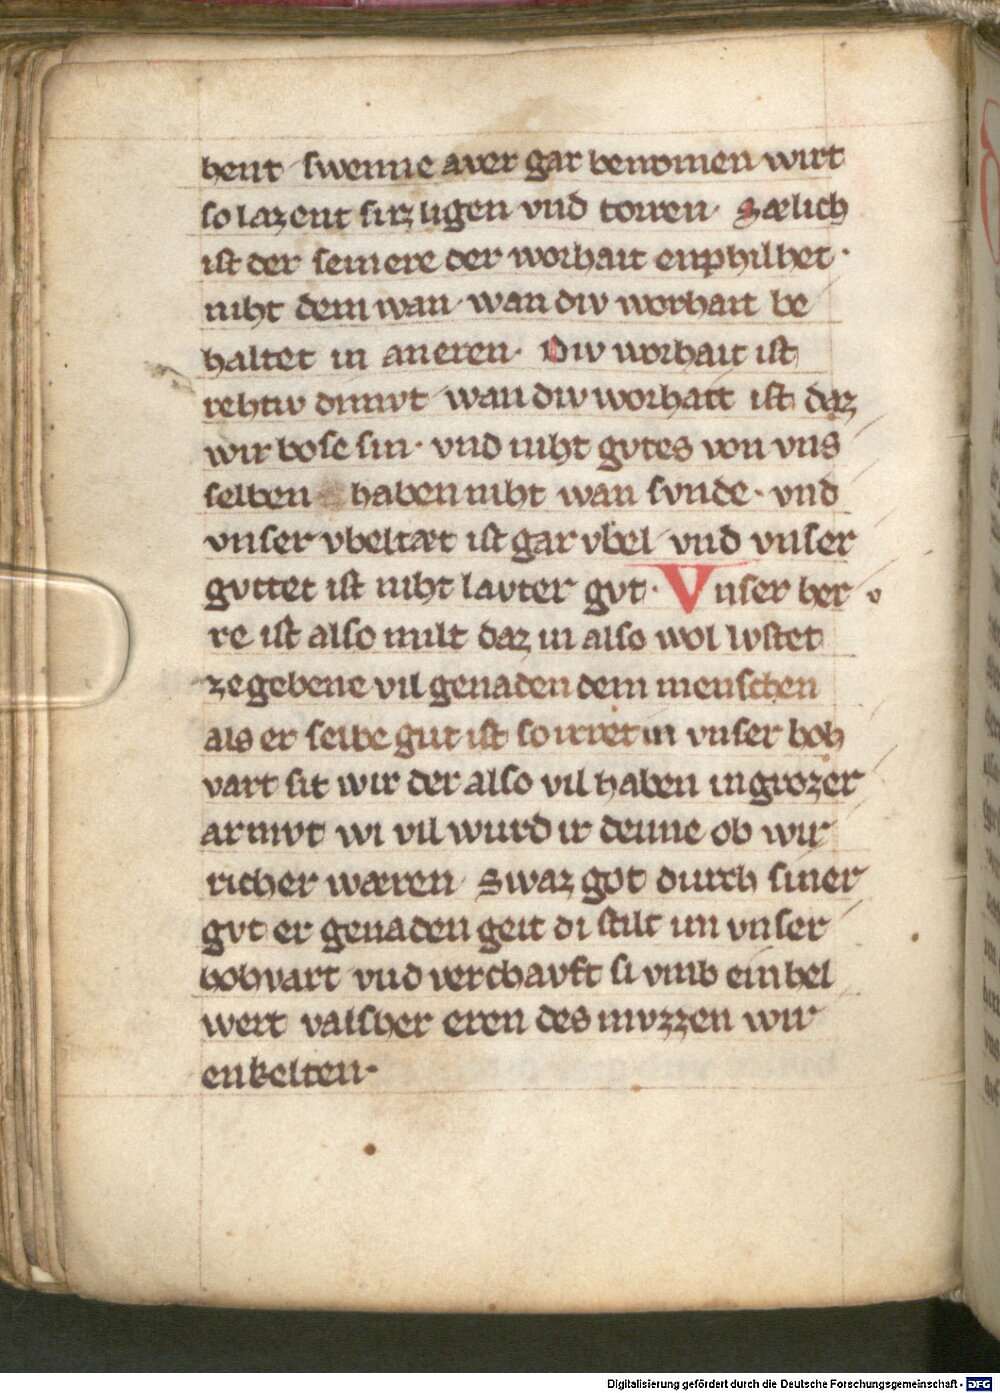 hent swenne aver gar benomen wirt
so lazent sirz ligen vnd torren· Sælich
ist der seinere der worhait enphilhet·
niht dem wan· wan diw worhait be
haltet in an eren· Diw worhait ist
rehtiv dimvt wan diw worhait ist daz
wir bose sin· vnd niht gvtes von vns
selben haben niht wan svnde· vnd
vnser vbeltæt ist gar vbel vnd vnser
gvttet ist niht lavter gvt· Vnser her v
re ist also milt daz in also wol lvstet
zegebene vil genaden dem menschen
als er selbe gut ist so irret in vnser hoh
vart sit wir der also vil haben in grozer
armvt wi vil wurd ir denne ob wir
richer wæren Swaz got durch siner
gvt er genaden geit di stilt im vnser
hohvart vnd verchavft si vmb ein hel
wert valscher eren des mvzzen wir
enkelten·
Digitalisierung gefördert durch die Deutsche Forschungsgemeinschaft - DFG